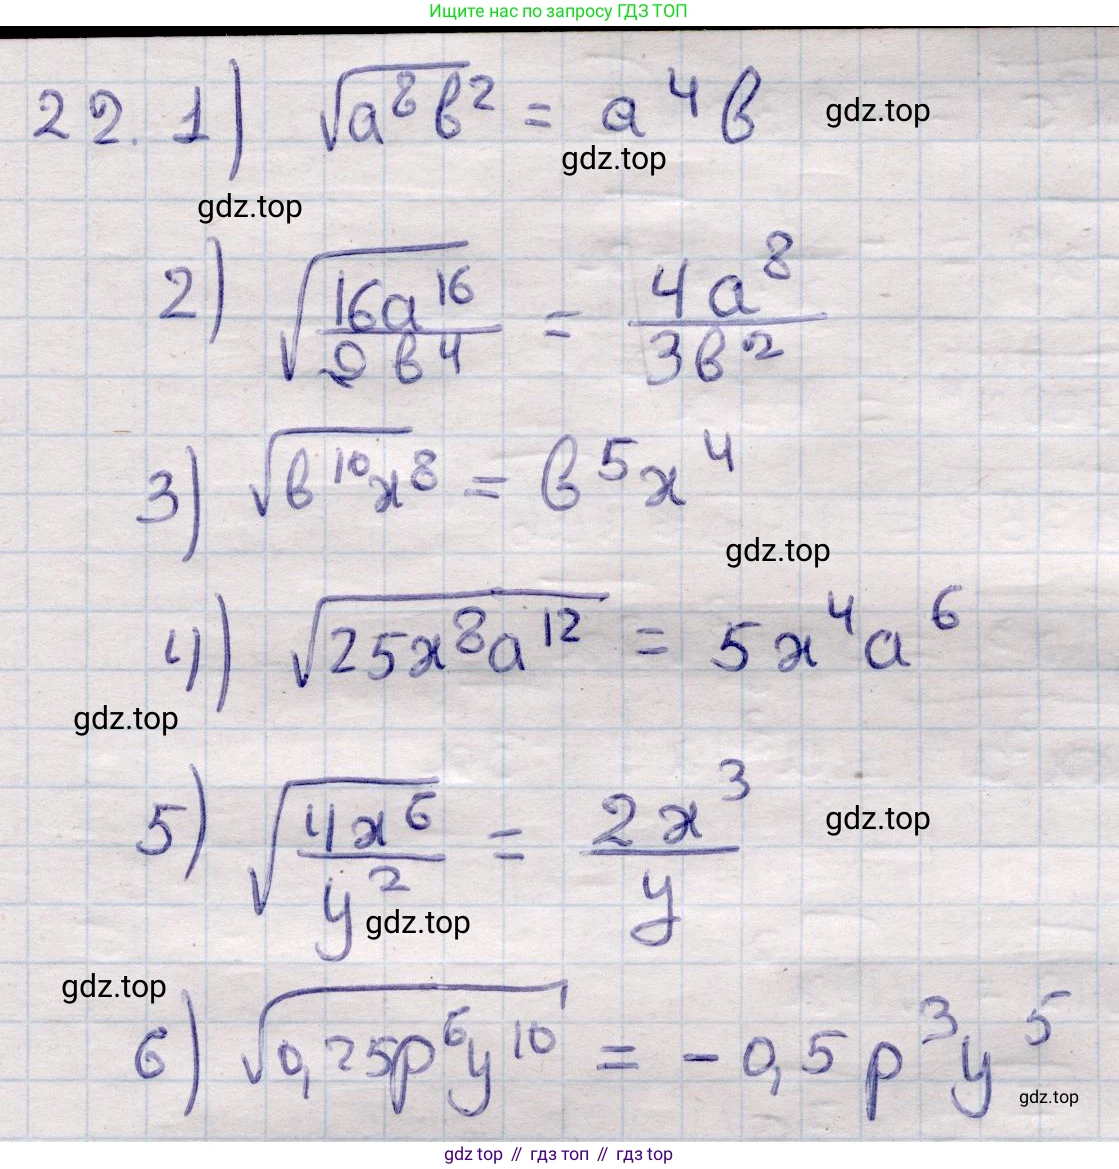 Ищите нас по запросу ГДЗ ТОП
22. 1) √(a⁸b²) = a⁴b
gdz.top
gdz.top
gdz.top
2) √(16a¹⁶/9b⁴) = 4a⁸/3b²
3) √(b¹⁰x⁸) = b⁵x⁴
gdz.top
4) √(25x⁸a¹²) = 5x⁴a⁶
gdz.top
5) √(4x⁶/y²) = 2x³/y
gdz.top
gdz.top
gdz.top
6) √(0,25p⁶y¹⁰) = -0,5p³y⁵
gdz.top
gdz.top // гдз топ // гдз.top